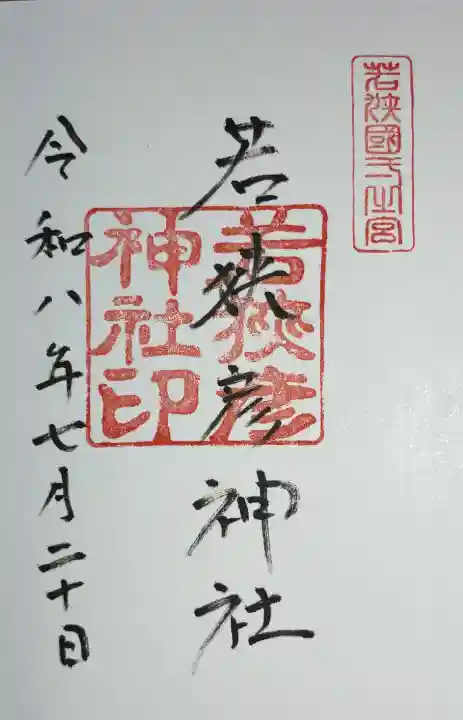 若狹國一之宮
若狭彦神社
若狹彦
神社印
令和八年七月二十日